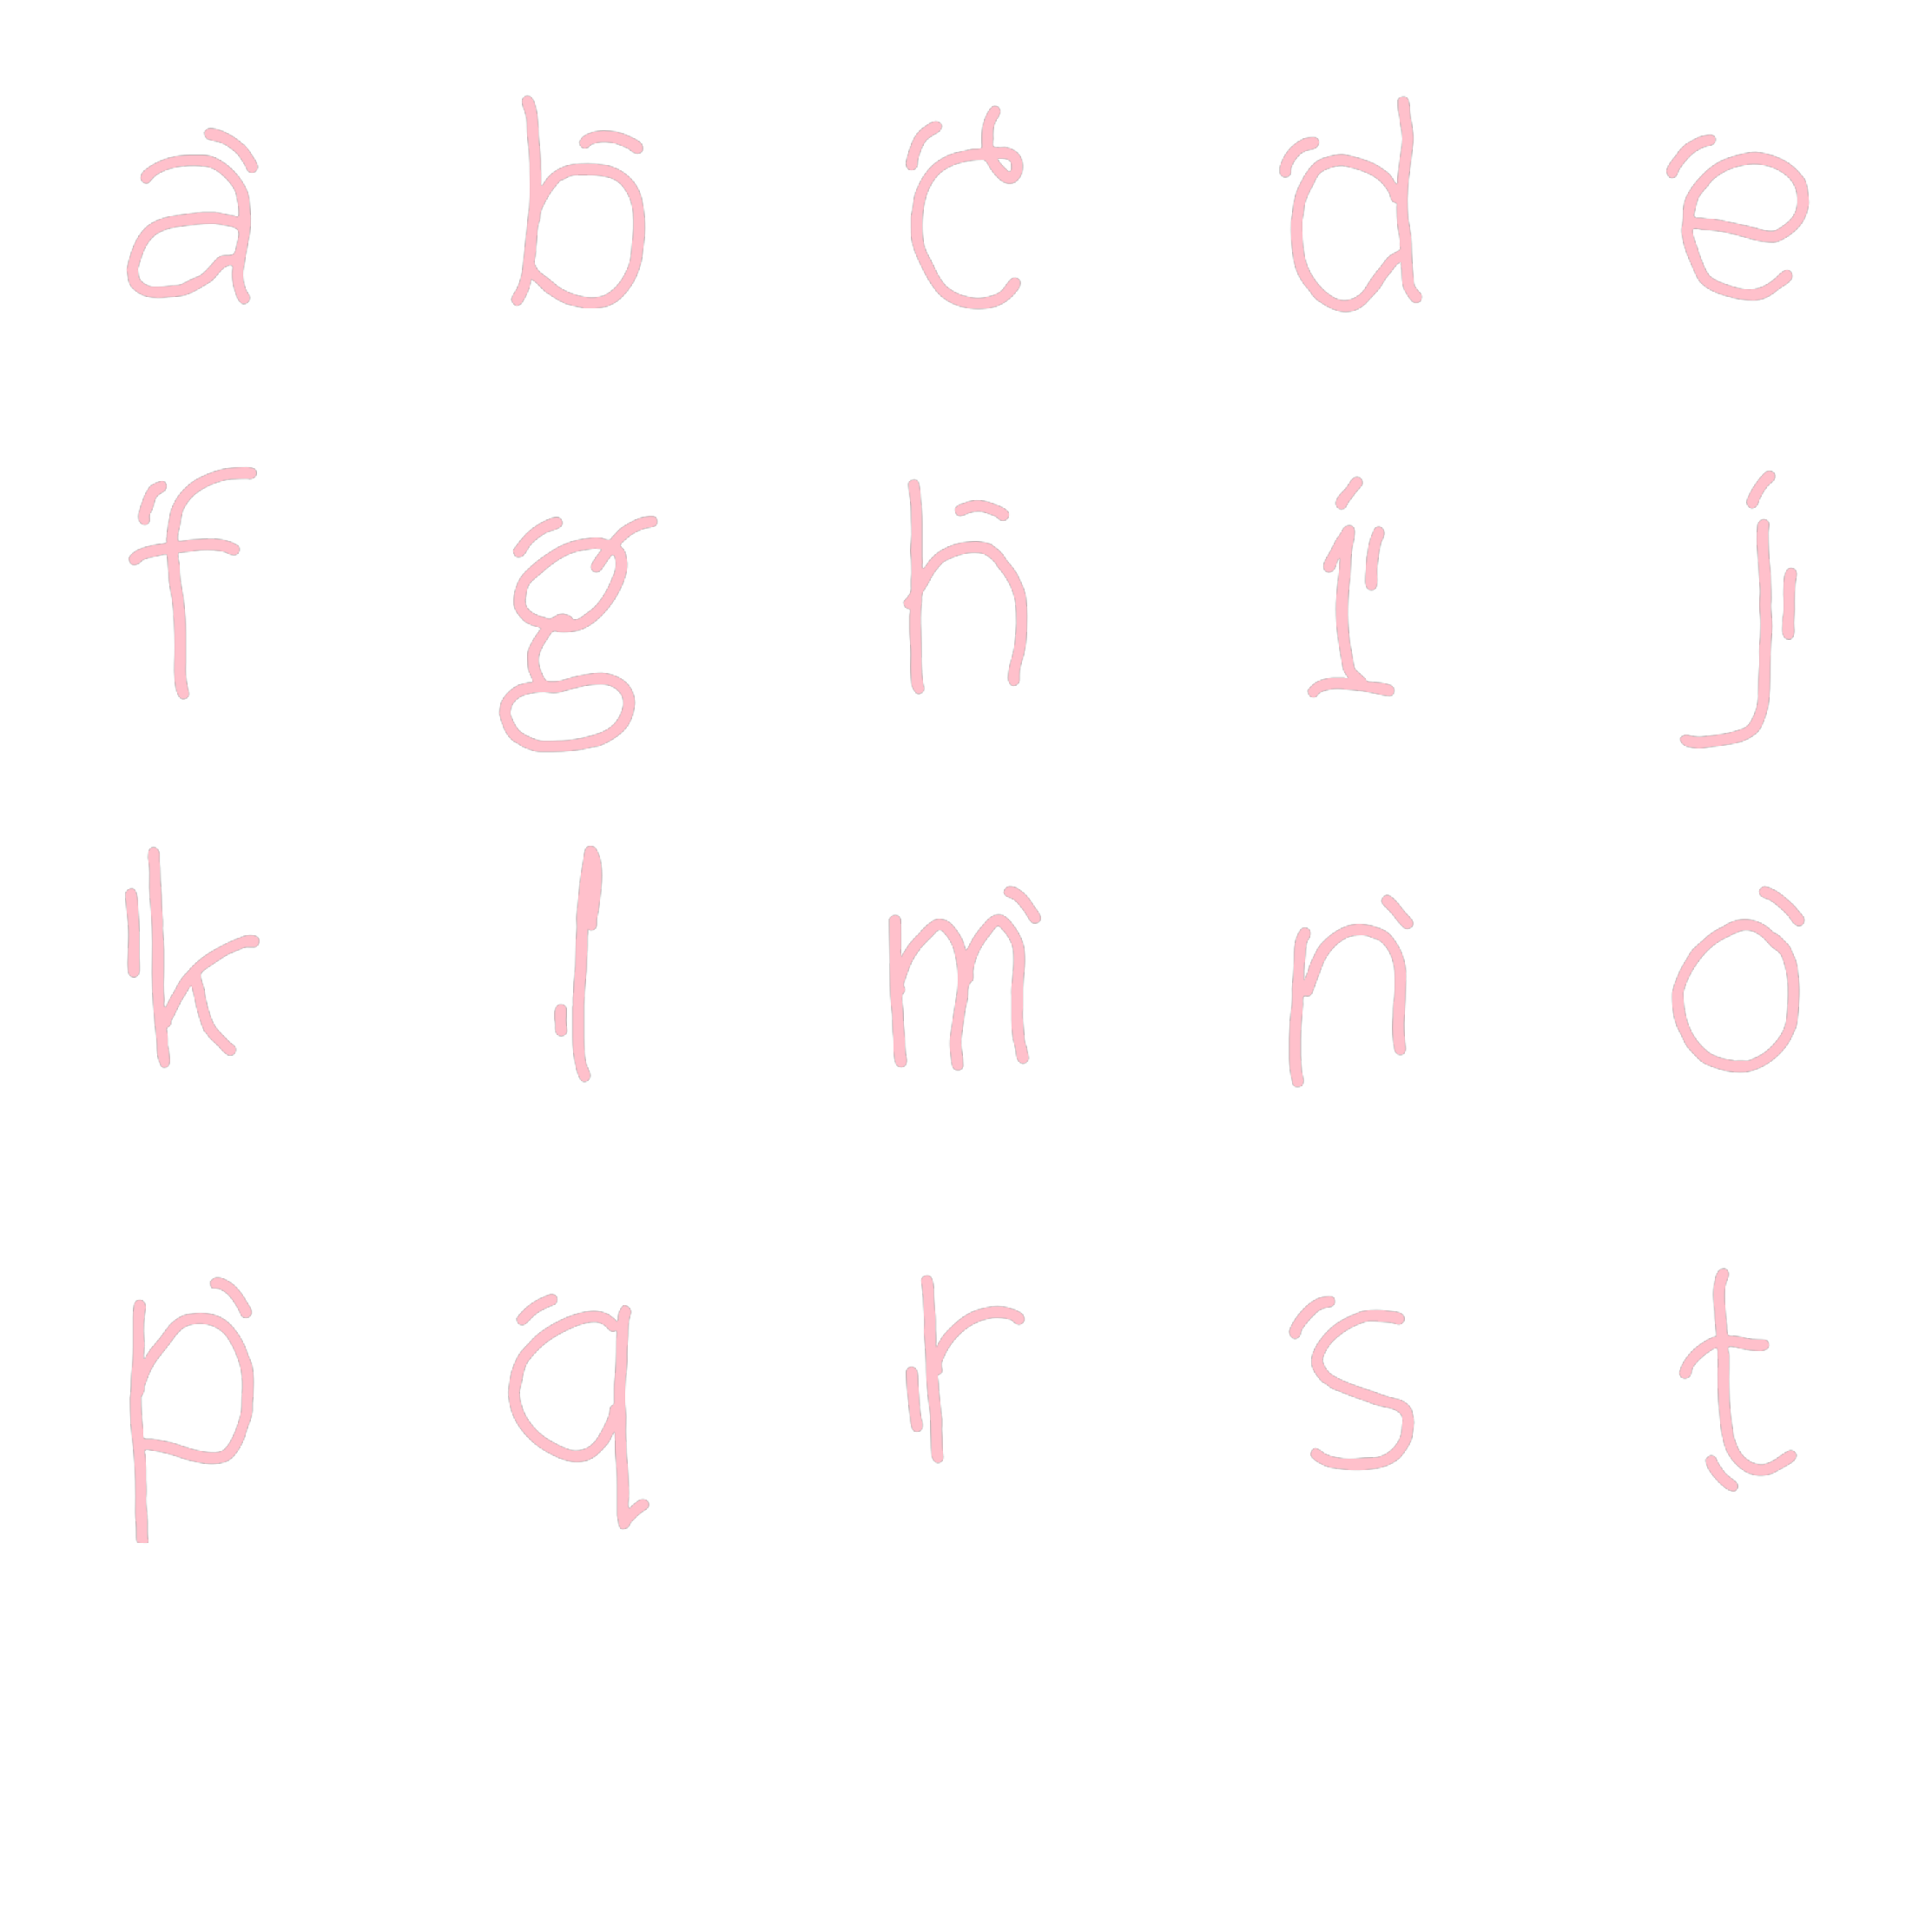 a b c d e
f g h i j
k l m n o
p q r s t